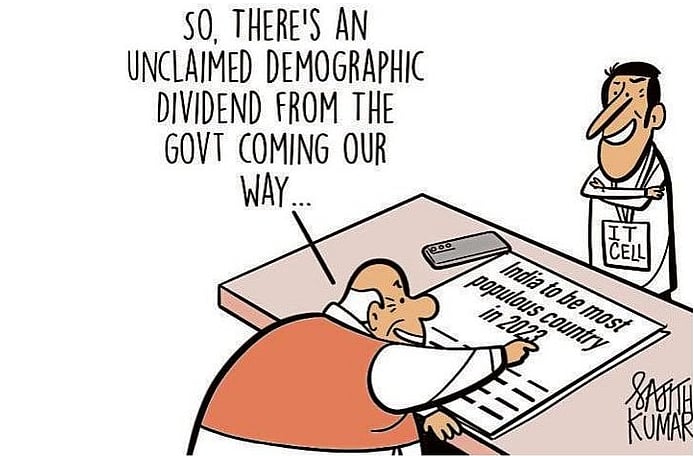 SO, THERE'S AN
UNCLAIMED DEMOGRAPHIC
DIVIDEND FROM THE
GOVT COMING OUR
WAY...
IT
CELL
India to be most
populous country
in 2023
SAJITH
KUMAR